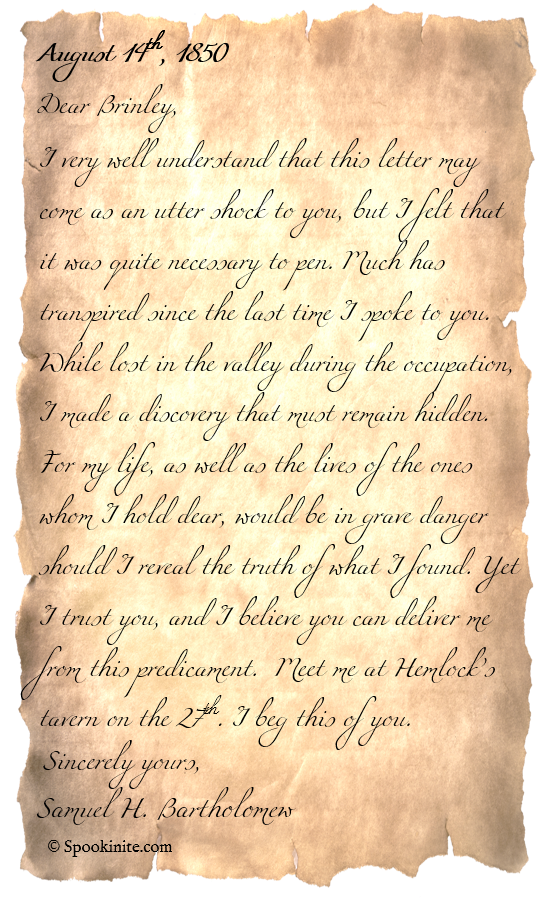 August 14th, 1850
Dear Brinley,
I very well understand that this letter may
come as an utter shock to you, but I felt that
it was quite necessary to pen. Much has
transpired since the last time I spoke to you.
While lost in the valley during the occupation,
I made a discovery that must remain hidden.
For my life, as well as the lives of the ones
whom I hold dear, would be in grave danger
should I reveal the truth of what I found. Yet
I trust you, and I believe you can deliver me
from this predicament. Meet me at Hemlock's
tavern on the 27th. I beg this of you.
Sincerely yours,
Samuel H. Bartholomew
© Spookinite.com